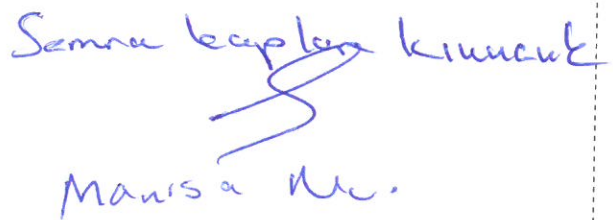 Semra Kaplan Kıvırcık
Manisa Mv.